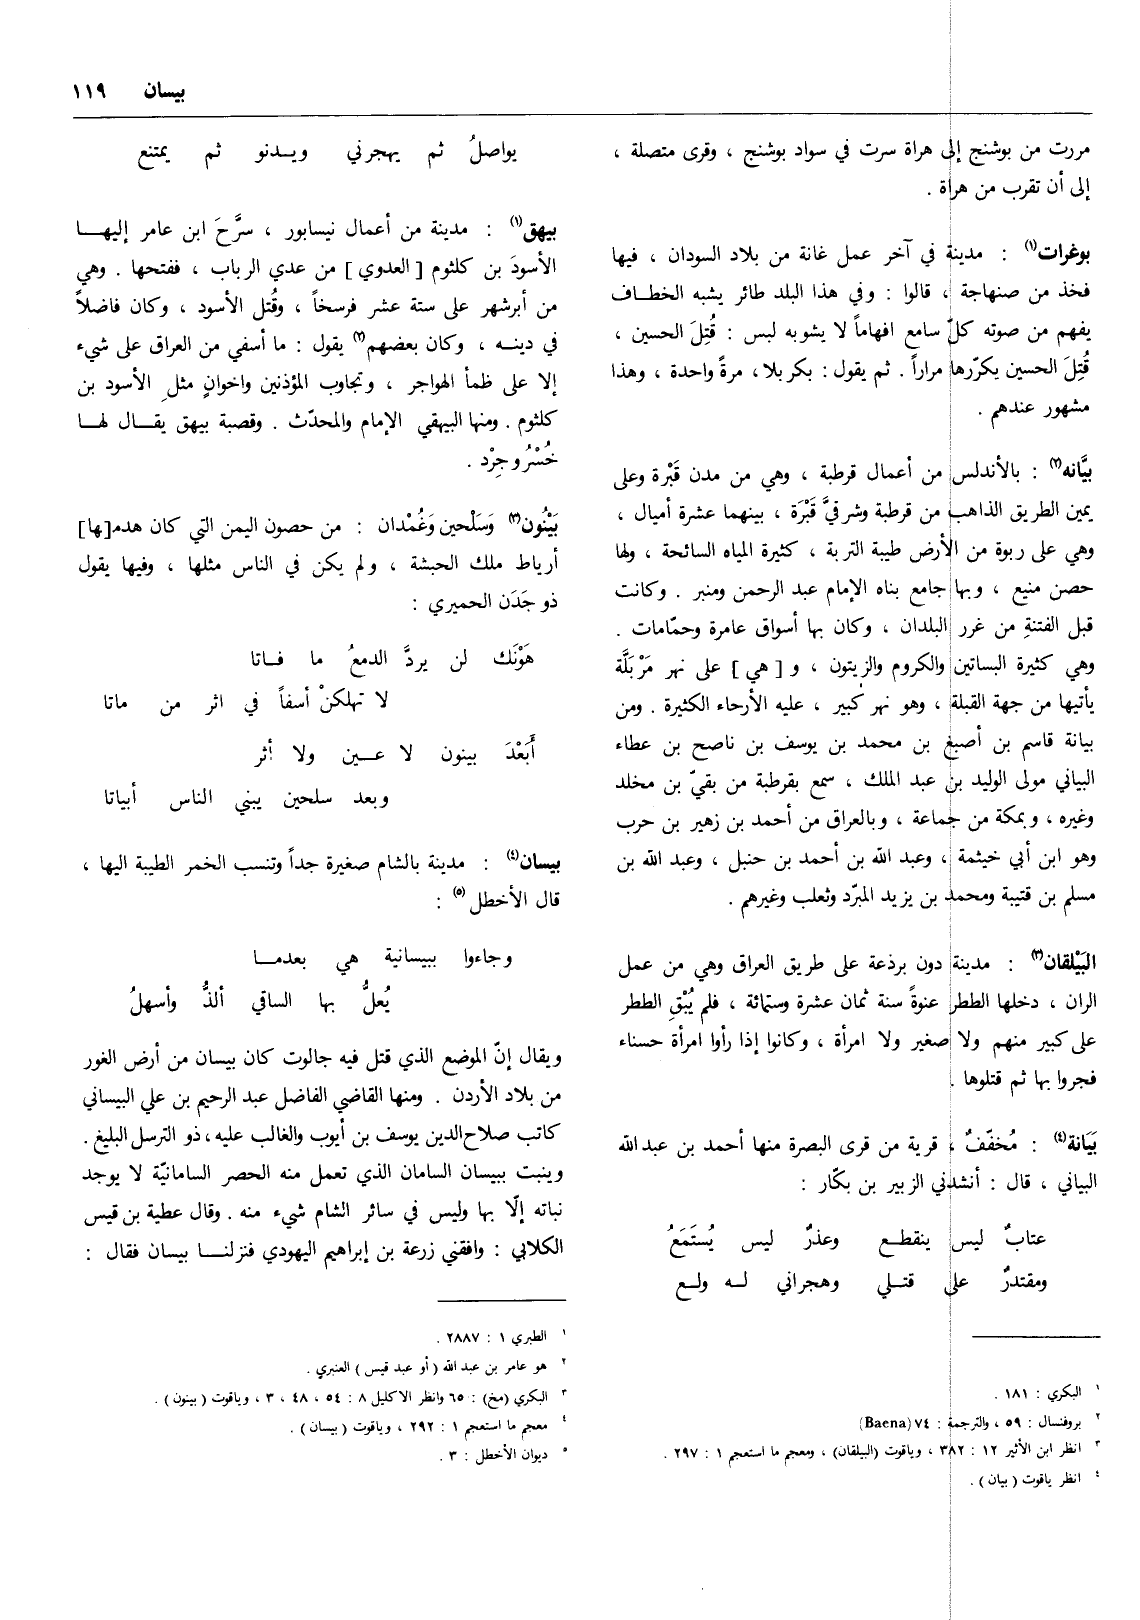 بيسان ١١٩
مررت من بوشنج إلى هراة سرت في سواد بوشنج ، وقرى متصلة ،
إلى أن تقرب من هراة .
بوغرات(١) : مدينة في آخر عمل غانة من بلاد السودان ، فيها
فخذ من صنهاجة ، قالوا : وفي هذا البلد طائر يشبه الخطاف
يفهم من صوته كلّ سامع افهاماً لا يشوبه لبس : قُتِلَ الحسين ،
قُتِلَ الحسين يكرّرها مراراً . ثم يقول : بكربلا، مرةً واحدة ، وهذا
مشهور عندهم .
بيَّانه(٢) : بالأندلس من أعمال قرطبة ، وهي من مدن قَبْرة وعلى
يمين الطريق الذاهب من قرطبة وشرقيَّ قَبْرَة ، بينهما عشرة أميال ،
وهي على ربوة من الأرض طيبة التربة ، كثيرة المياه السائحة ، ولها
حصن منيع ، وبها جامع بناه الإمام عبد الرحمن ومنبر . وكانت
قبل الفتنةِ من غرر البلدان ، وكان بها أسواق عامرة وحمّامات .
وهي كثيرة البساتين والكروم والزيتون ، و [ هي ] على نهر مَرْبَلَّة
يأتيها من جهة القبلة ، وهو نهر كبير ، عليه الأرحاء الكثيرة . ومن
بيانة قاسم بن أصبغ بن محمد بن يوسف بن ناصح بن عطاء
البياني مولى الوليد بن عبد الملك ، سمع بقرطبة من بقيّ بن مخلد
وغيره ، وبمكة من جماعة ، وبالعراق من أحمد بن زهير بن حرب
وهو ابن أبي خيثمة ، وعبد الله بن أحمد بن حنبل ، وعبد الله بن
مسلم بن قتيبة ومحمد بن يزيد المبرّد وثعلب وغيرهم .
البَيْلقان(٣) : مدينة دون برذعة على طريق العراق وهي من عمل
الران ، دخلها الططر عنوةً سنة ثمان عشرة وستمائة ، فلم يُبْقِ الططر
على كبير منهم ولا صغير ولا امرأة ، وكانوا إذا رأوا امرأة حسناء
فجروا بها ثم قتلوها .
بَيَانة(٤) : مُخفّفٌ ، قرية من قرى البصرة منها أحمد بن عبد الله
البياني ، قال : أنشدني الزبير بن بكّار :
عتابٌ ليس ينقطع وعذرٌ ليس يُستَمَعُ
ومقتدرٌ على قتلي وهجراني له ولع
١ البكري : ١٨١ .
٢ بروفنسال : ٥٩ ، والترجمة : ٧٤ (Baena)
٣ انظر ابن الأثير ١٢ : ٣٨٢ ، وياقوت (البيلقان) ، ومعجم ما استعجم ١ : ٢٩٧ .
٤ انظر ياقوت ( بيان ) .
يواصلُ ثم يهجرني ويدنو ثم يمتنع
بيهق(١) : مدينة من أعمال نيسابور ، سرَّحَ ابن عامر إليها
الأسودَ بن كلثوم [ العدوي ] من عدي الرباب ، ففتحها . وهي
من أبرشهر على ستة عشر فرسخاً ، وقُتل الأسود ، وكان فاضلاً
في دينه ، وكان بعضهم(٢) يقول : ما أسفي من العراق على شيء
إلا على ظمأ الهواجر ، وتجاوب المؤذنين واخوانٍ مثلِ الأسود بن
كلثوم . ومنها البيهقي الإمام والمحدّث . وقصبة بيهق يقال لها
خُسْرُوجِرْد .
بَيْنُون(٣) وَسَلْحين وَغُمْدان : من حصون اليمن التي كان هدم[ها]
أرياط ملك الحبشة ، ولم يكن في الناس مثلها ، وفيها يقول
ذو جَدَن الحميري :
هَوْنَك لن يردَّ الدمعُ ما فاتا
لا تهلكنْ أسفاً في اثر من ماتا
أَبَعْدَ بينون لا عين ولا أثر
وبعد سلحين يبني الناس أبياتا
بيسان(٤) : مدينة بالشام صغيرة جداً وتنسب الخمر الطيبة اليها ،
قال الأخطل(٥) :
وجاءوا ببيسانية هي بعدما
يُعلُّ بها الساقي ألذُّ وأسهلُ
ويقال إنّ الموضع الذي قتل فيه جالوت كان بيسان من أرض الغور
من بلاد الأردن . ومنها القاضي الفاضل عبد الرحيم بن علي البيساني
كاتب صلاح الدين يوسف بن أيوب والغالب عليه، ذو الترسل البليغ .
وينبت ببيسان السامان الذي تعمل منه الحصر السامانيّة لا يوجد
نباته إلّا بها وليس في سائر الشام شيء منه . وقال عطية بن قيس
الكلابي : وافقني زرعة بن إبراهيم اليهودي فنزلنا بيسان فقال :
١ الطبري ١ : ٢٨٨٧ .
٢ هو عامر بن عبد الله ( أو عبد قيس ) العنبري .
٣ البكري (مخ) : ٦٥ وانظر الاكليل ٨ : ٥٤ ، ٤٨ ، ٣ ، وياقوت ( بينون ) .
٤ معجم ما استعجم ١ : ٢٩٢ ، وياقوت ( بيسان ) .
٥ ديوان الأخطل : ٣ .